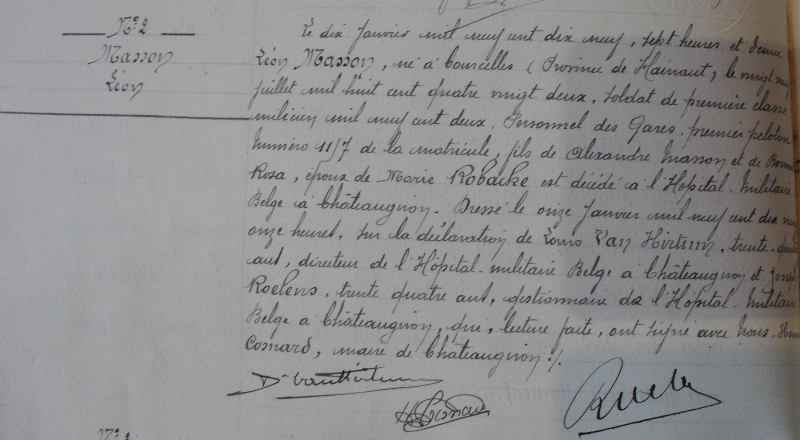 N° 2
Masson
Léon
Le dix Janvier mil neuf cent dix neuf, sept heures et demie
Léon Masson, né à Courcelles (Province de Hainaut) le vingt neuf
juillet mil huit cent quatre vingt deux, soldat de première classe
milicien mil neuf cent deux. Personnel des Gares. premier peloton
Numéro 117 de la matricule, fils de Alexandre Masson et de
Rosa, époux de Marie Robacke est décédé à l'Hôpital-Militaire
Belge à Châteaugiron. Dressé le onze Janvier mil neuf cent dix neuf
onze heures, sur la déclaration de Louis Van Hirtum, trente-
ans, directeur de l'Hôpital-militaire Belge à Châteaugiron et Joseph
Roelens, trente quatre ans, gestionnaire de l'Hôpital-Militaire
Belge à Châteaugiron, qui, lecture faite, ont signé avec Nous.
Comard, maire de Châteaugiron ./.
Dr VanHirtum